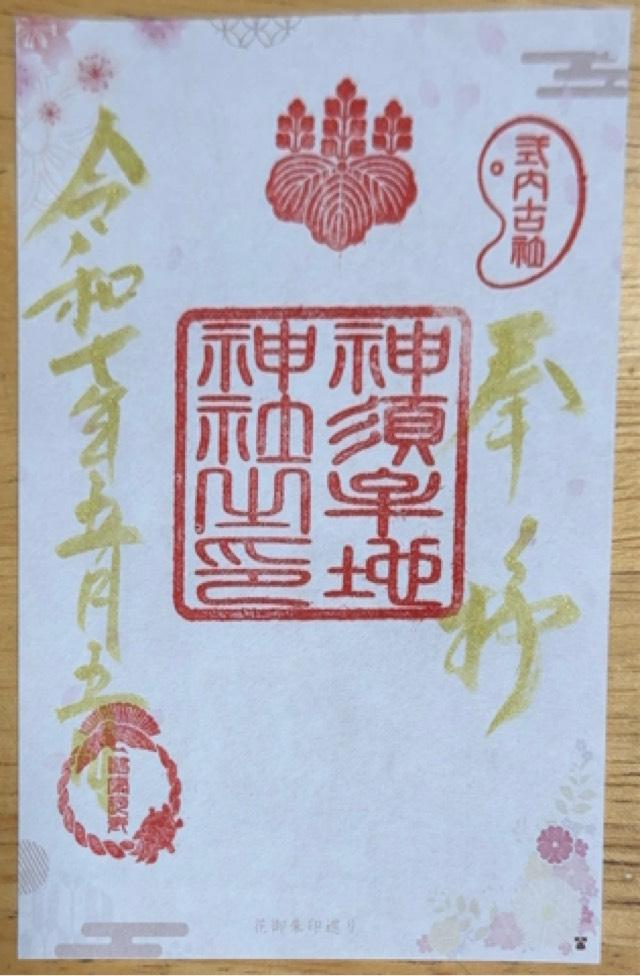 式内古社
奉拝
神須牟地
神社之印
令和七年五月五日
花御朱印巡り